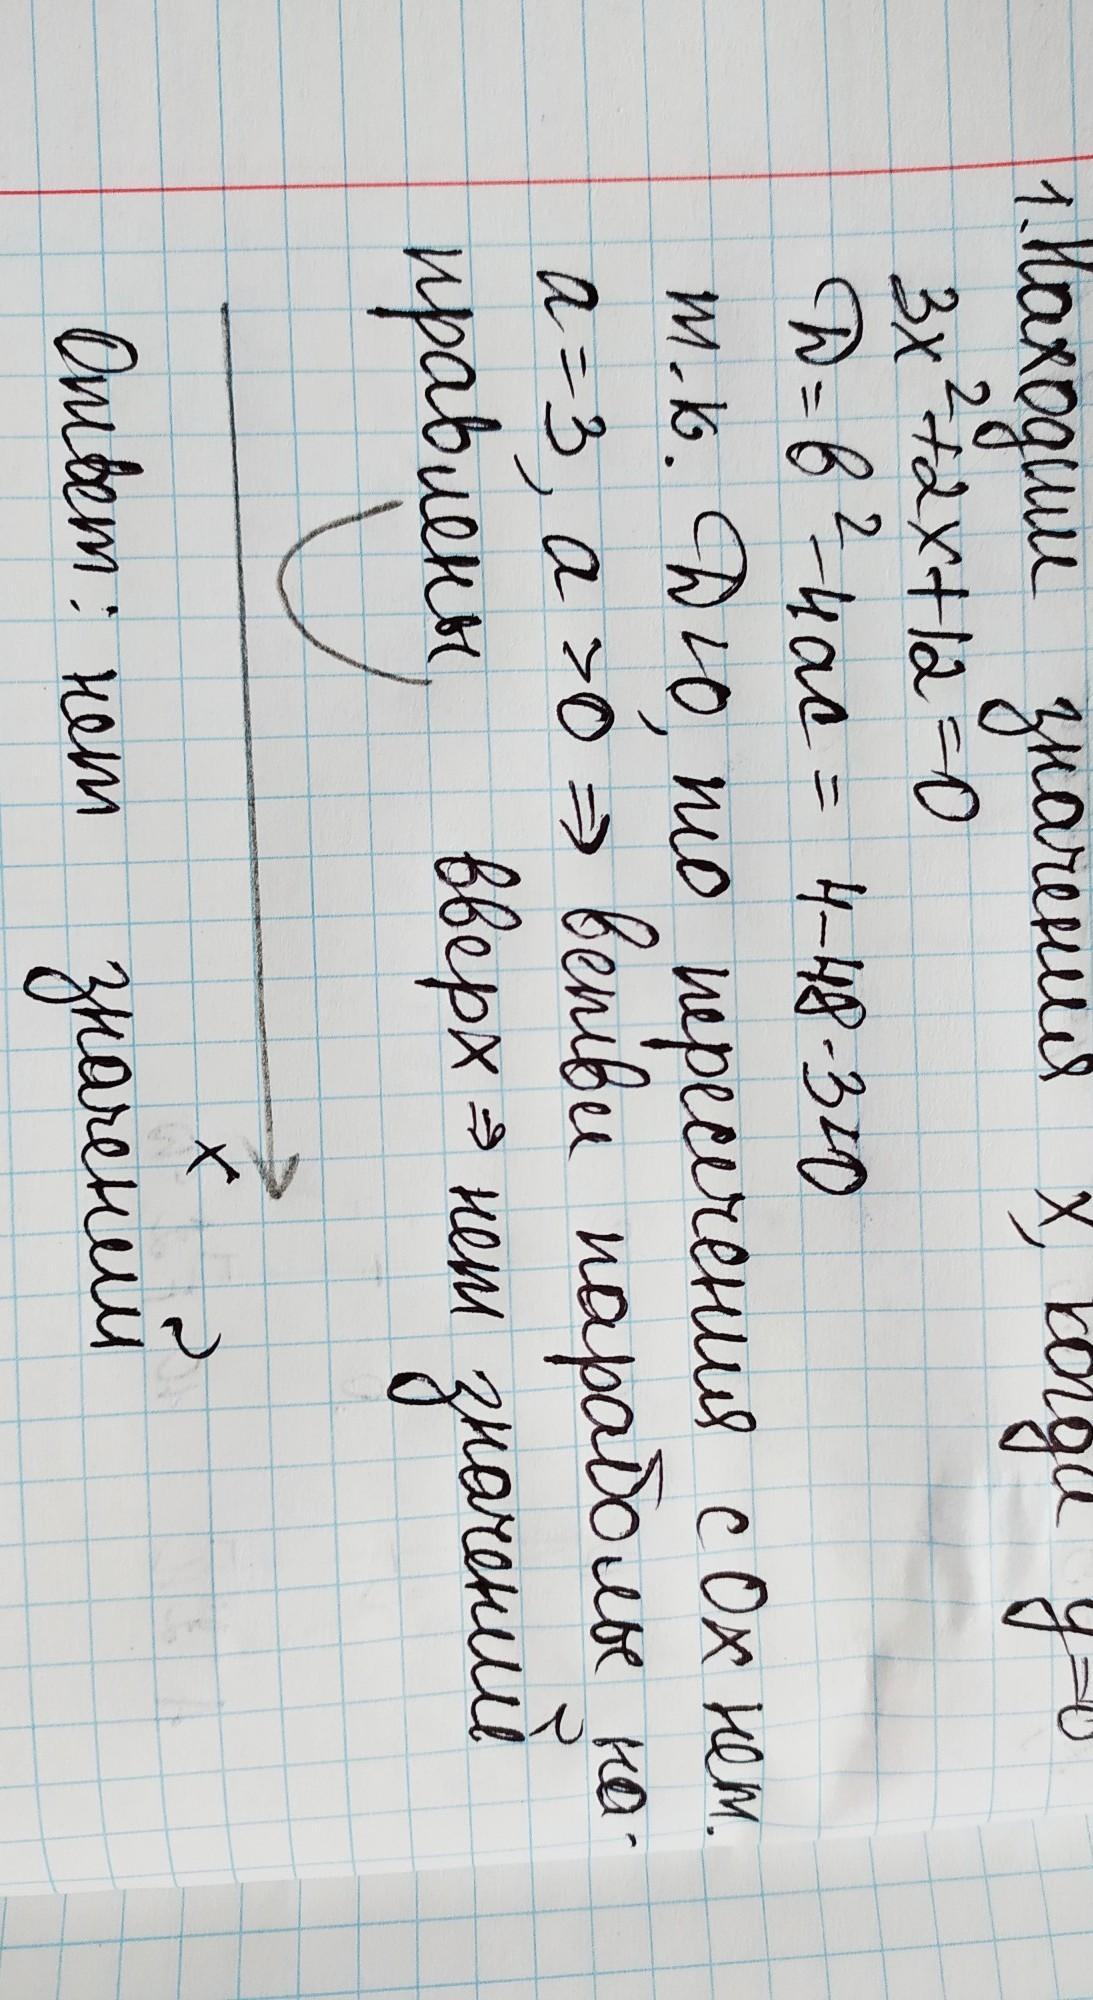 1. Находим значения x, когда y=0
3x²+2x+12=0
D=b²-4ac = 4-48·3<0
т.к. D<0, то пересечения с Ox нет.
a=3, a>0 ⇒ ветви параболы на-
правлены вверх ⇒ нет значений
x
Ответ: нет значений